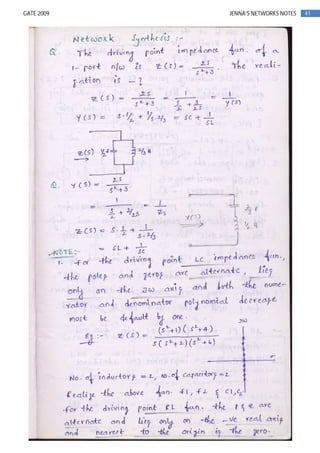 GATE 2009 JENNA'S NETWORKS NOTES 41
Network Synthesis :-
Q. The driving point impedance fun. of a
1-port n/w is Z(s) = 2s / s²+3 The reali-
zation is - ?
Z(s) = 2s / s²+3 = 1 / s/2 + 3/2s = 1 / Y(s)
Y(s) = s·1/2 + 1/s·2/3 = sC + 1/sL
Z(s) 2/3 H
Q. Y(s) = 2s / s²+3
= 1 / s/2 + 3/2s = 1 / Zs
Y(s)
Z(s) = s·1/2 + 1/s·2/3
= sL + 1/sC
NOTE:-
1. For the driving point LC impedance fun.,
the poles and zeros are alternate, lies
only on the jω axis and both the nume-
rator and denominator polynomial decrease
must be default by one.
Eg :- Z(s) = (s²+1)(s²+4) / s(s²+2)(s²+6)
jω
No. of inductors = 2, no. of capacitors = 2
Realize the above fun. f1, f2 & C1, C2
for the driving point RL fun. the P & Z are
alternate and lies only on the -ve real axis
and nearest to the origin is the zero.